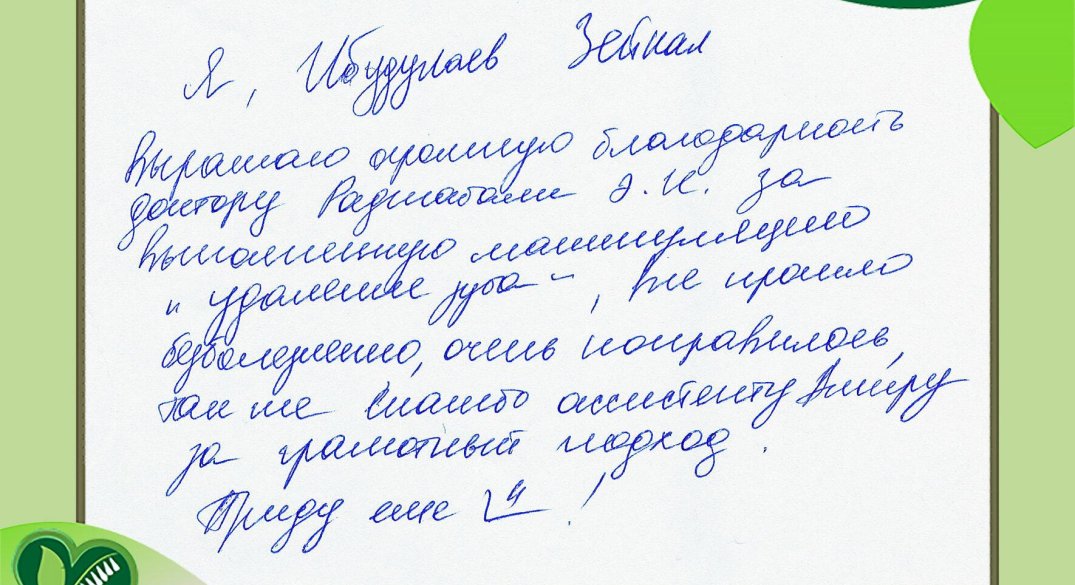 Я, Ибудулаев Зейнал
выражаю огромную благодарность
доктору Раджабали Э.К. за
выполненную манипуляцию
"удаление зуба", все прошло
безболезненно, очень понравилось,
так же спасибо ассистенту Амиру
за грамотный подход.
Приду еще !